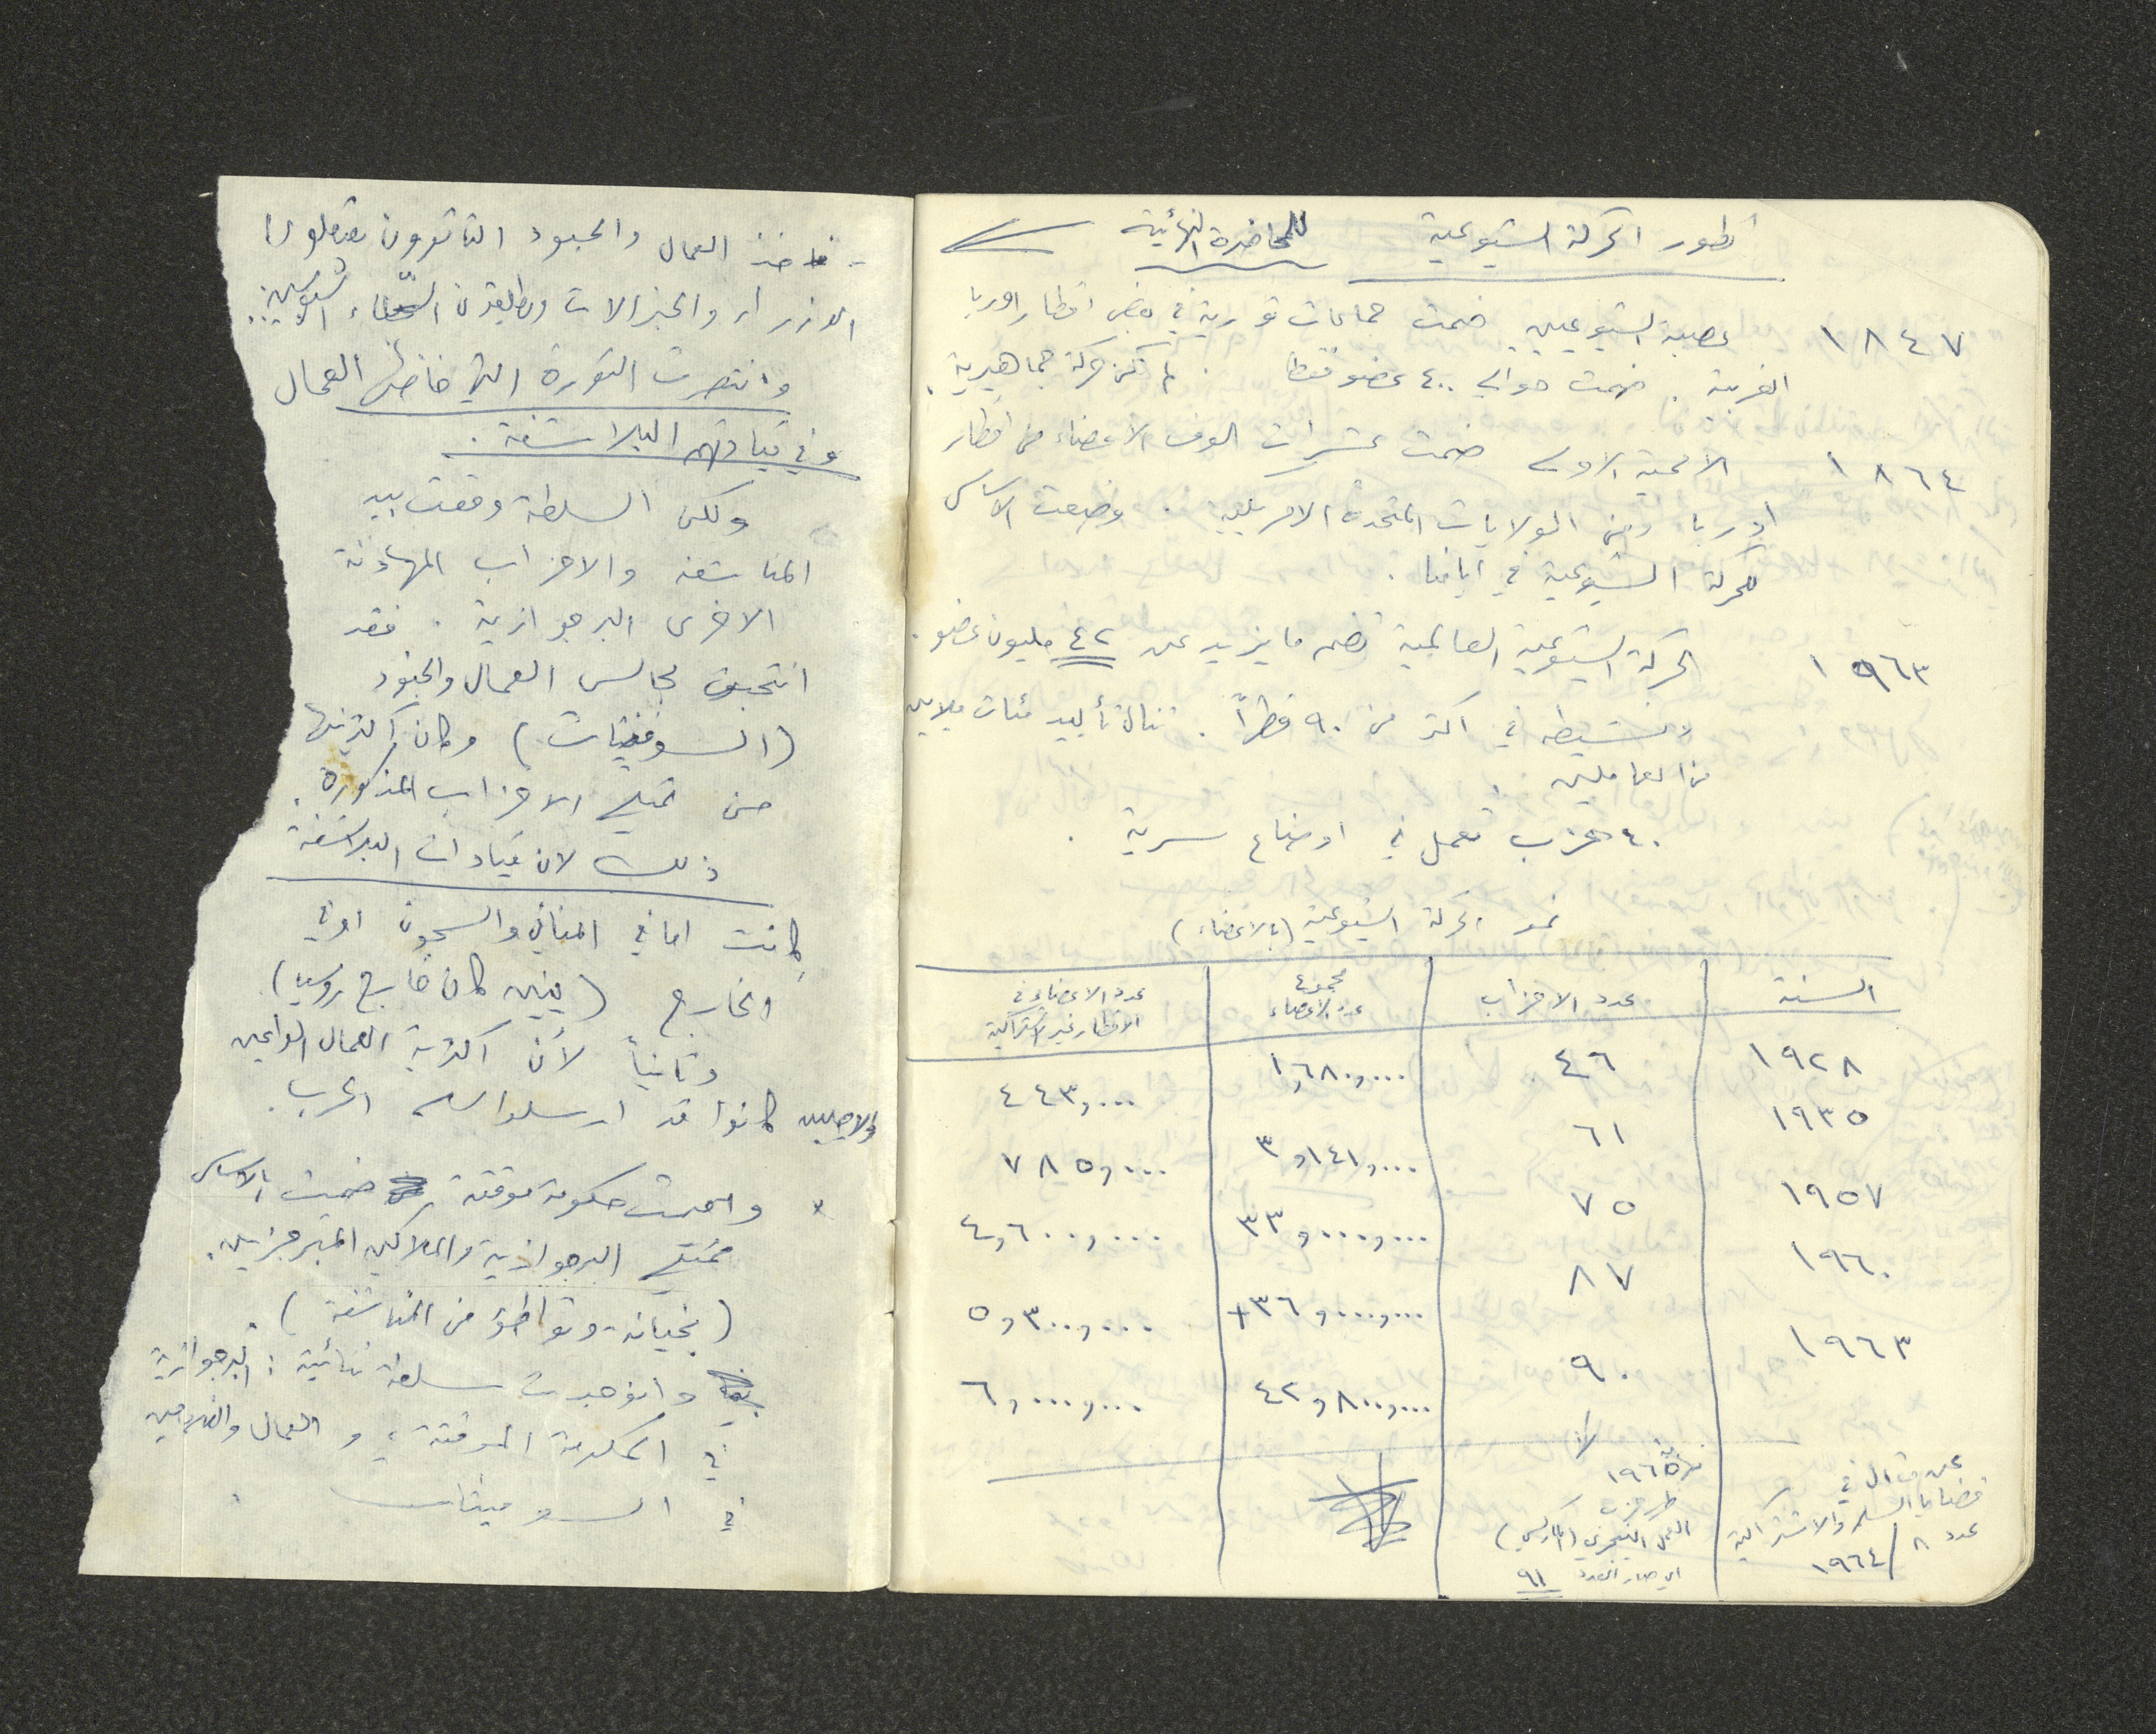 تطور الحركة الشيوعية للمحاضرة النهائية
١٨٤٧ عصبة الشيوعيين ضمت جماعات ثورية في بعض اقطار اوربا
الغربية . ضمت حوالي ٤٠٠ عضو فقط . لم تكن حركة جماهيرية .
١٨٦٤ الاممية الاولى ضمت عشرات الوف الاعضاء من اقطار
اوربا ومن الولايات المتحدة الامريكية . وضعت الاساس
للحركة الشيوعية في ايامنا .
١٩٦٣ الحركة الشيوعية العالمية تضم ما يزيد عن ٤٢ مليون عضو .
ونشيطه في اكثر من ٩٠ قطراً . تنال تأييد مئات ملايين
من العاملين .
٤٠ حزب تعمل في اوضاع سرية .
نمو الحركة الشيوعية (بالاعضاء)
السنة عدد الاحزاب مجموع عدد الاعضاء عدد الاعضاء في الاقطار غير الاشتراكية
١٩٢٨ ٤٦ ١,٦٨٠,٠٠٠ ٤٤٣,٠٠٠
١٩٣٥ ٦١ ٣,١٤١,٠٠٠ ٧٨٥,٠٠٠
١٩٥٧ ٧٥ ٣٣,٠٠٠,٠٠٠ ٤,٦٠٠,٠٠٠
١٩٦٠ ٨٧ ٣٦,٠٠٠,٠٠٠+ ٥,٣٠٠,٠٠٠
١٩٦٣ ٩٠ ٤٢,٨٠٠,٠٠٠ ٦,٠٠٠,٠٠٠
عن مقال في
قضايا السلم والاشتراكية
عدد ٨ / ١٩٦٤
١٩٦٥
حزب
العمل النيجري (الماركسي)
اي صار العدد ٩١
- فاخذ العمال والجنود الثائرون يعتقلون
الوزراء والجنرالات ويطلقون السجناء السياسيين..
وانتصرت الثورة التي خاضها العمال
وفي قيادتهم البلاشفة .
ولكن السلطة وقعت بيد
المناشفه والاحزاب المهادنة
الاخرى البرجوازية . فقد
انتخبت مجالس العمال والجنود
(السوفيتات) وكان اكثريتها
من ممثلي الاحزاب المذكورة .
ذلك لان قيادات البلاشفة
كانت اما في المنافي والسجون او في
الخارج (لينين كان خارج روسيا)
وثانياً لأن اكثرية العمال الواعين
كانوا قد ارسلوا الى الحرب .
* واقيمت حكومة موقتة ضمت بالاساس
ممثلي البرجوازية والملاكين المتبرجزين .
(بخيانة وتواطؤ من المناشفة) .
وانوجدت سلطة ثنائية : البرجوازية
في الحكومة الموقتة ، والعمال والفلاحين
في السوفيتات .